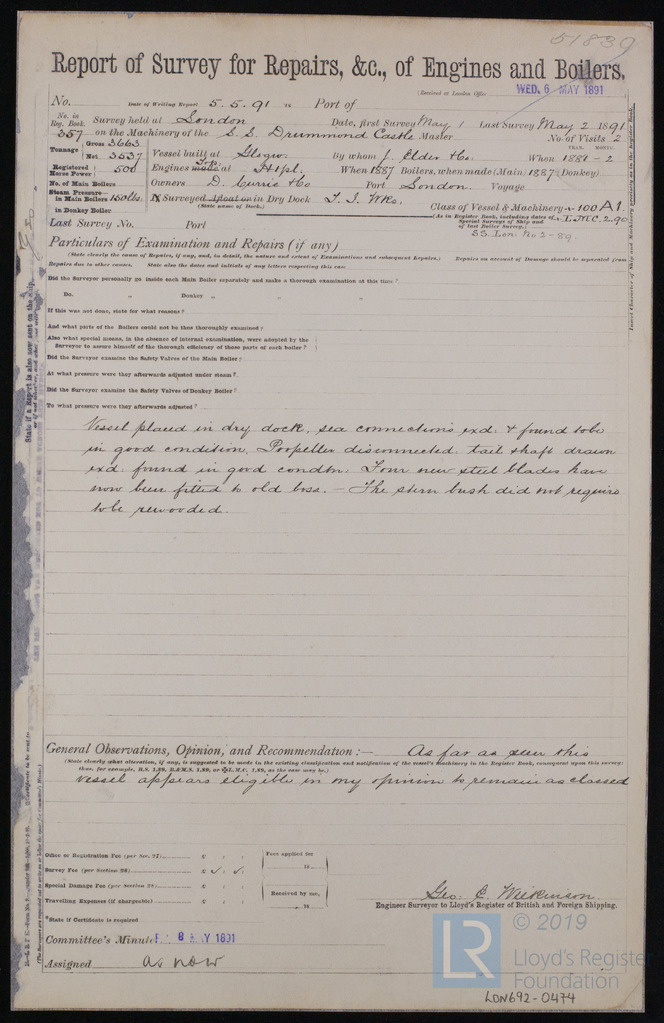 51839
Report of Survey for Repairs, &c., of Engines and Boilers.
(Received at London Office WED. 6 MAY 1891
No. Date of Writing Report 5.5.91 Port of
No. in Reg. Book. 357 Survey held at London Date, first Survey May 1 Last Survey May 2 1891
on the Machinery of the S.S. Drummond Castle Master No. of Visits 2
Tonnage Gross 3663 Net 3537 Vessel built at Glsgw By whom J. Elder & Co. When 1881-2
YEAR. MONTH.
Registered Horse Power 500 Engines made at Hepl. When 1887 Boilers, when made (Main) 1887 (Donkey)
No. of Main Boilers Owners D. Currie & Co Port London Voyage
Steam Pressure in Main Boilers 150 lbs. Surveyed Afloat or in Dry Dock T. I. Wks.
(State name of Dock.)
Class of Vessel & Machinery 100 A1.
in Donkey Boiler
(As in Register Book, including dates of Special Surveys of Ship and of last Boiler Survey.) L.M.C. 2.90
Last Survey No. Port S.S. Lon: No 2-89
Particulars of Examination and Repairs (if any)
(State clearly the cause of Repairs, if any, and, in detail, the nature and extent of Examinations and subsequent Repairs.) Repairs on account of Damage should be separated from
Repairs due to other causes. State also the dates and initials of any letters respecting this case
Did the Surveyor personally go inside each Main Boiler separately and make a thorough examination at this time?
Do. „ Donkey „ „ „
If this was not done, state for what reasons?
And what parts of the Boilers could not be thus thoroughly examined?
Also what special means, in the absence of internal examination, were adopted by the
Surveyor to assure himself of the thorough efficiency of those parts of each boiler?
Did the Surveyor examine the Safety Valves of the Main Boiler?
At what pressure were they afterwards adjusted under steam?
Did the Surveyor examine the Safety Valves of Donkey Boiler?
To what pressure were they afterwards adjusted?
Vessel placed in dry dock, sea connections exd: & found to be
in good condition, Propeller disconnected, tail shaft drawn
exd: found in good condtn: Four new steel blades have
now been fitted to old boss. — The stern bush did not require
to be rewooded.
General Observations, Opinion, and Recommendation:— As far as seen this
(State clearly what alteration, if any, is suggested to be made in the existing classification and notification of the vessel's Machinery in the Register Book, consequent upon this survey:
thus, for example, B.S. 1,89, B.&M.S. 1,89, or L.M.C. 1,89, as the case may be.)
vessel appears eligible in my opinion to remain as classed
Office or Registration Fee (per Sec. 27) £ : :
Fees applied for
Survey Fee (per Section 28) £ : :
Special Damage Fee (per Section 28) £ : :
Received by me,
Travelling Expenses (if chargeable) £ : :
Geo. C. Wilkinson
Engineer Surveyor to Lloyd's Register of British and Foreign Shipping.
*State if Certificate is required
Committee's Minute 8 MAY 1891
Assigned as now
© 2019
LR
Lloyd's Register
Foundation
LON692-0474